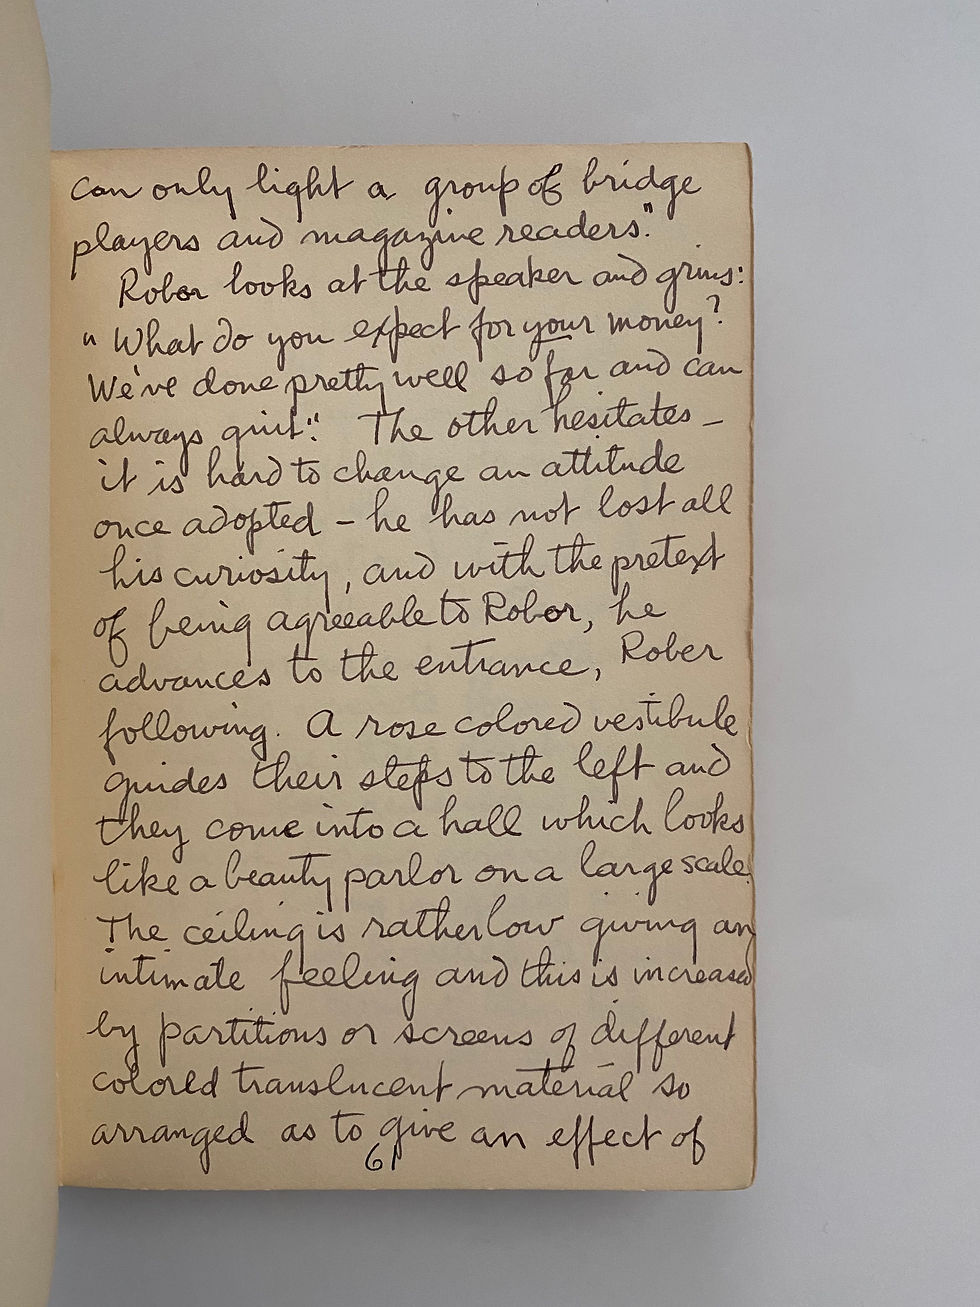 can only light a group of bridge
players and magazine readers."
Robor looks at the speaker and grins:
"What do you expect for your money?
We've done pretty well so far and can
always quit." The other hesitates –
it is hard to change an attitude
once adopted – he has not lost all
his curiosity, and with the pretext
of being agreeable to Robor, he
advances to the entrance, Rober
following. A rose colored vestibule
guides their steps to the left and
they come into a hall which looks
like a beauty parlor on a large scale.
The ceiling is rather low giving an
intimate feeling and this is increased
by partitions or screens of different
colored translucent material so
arranged as to give an effect of
61